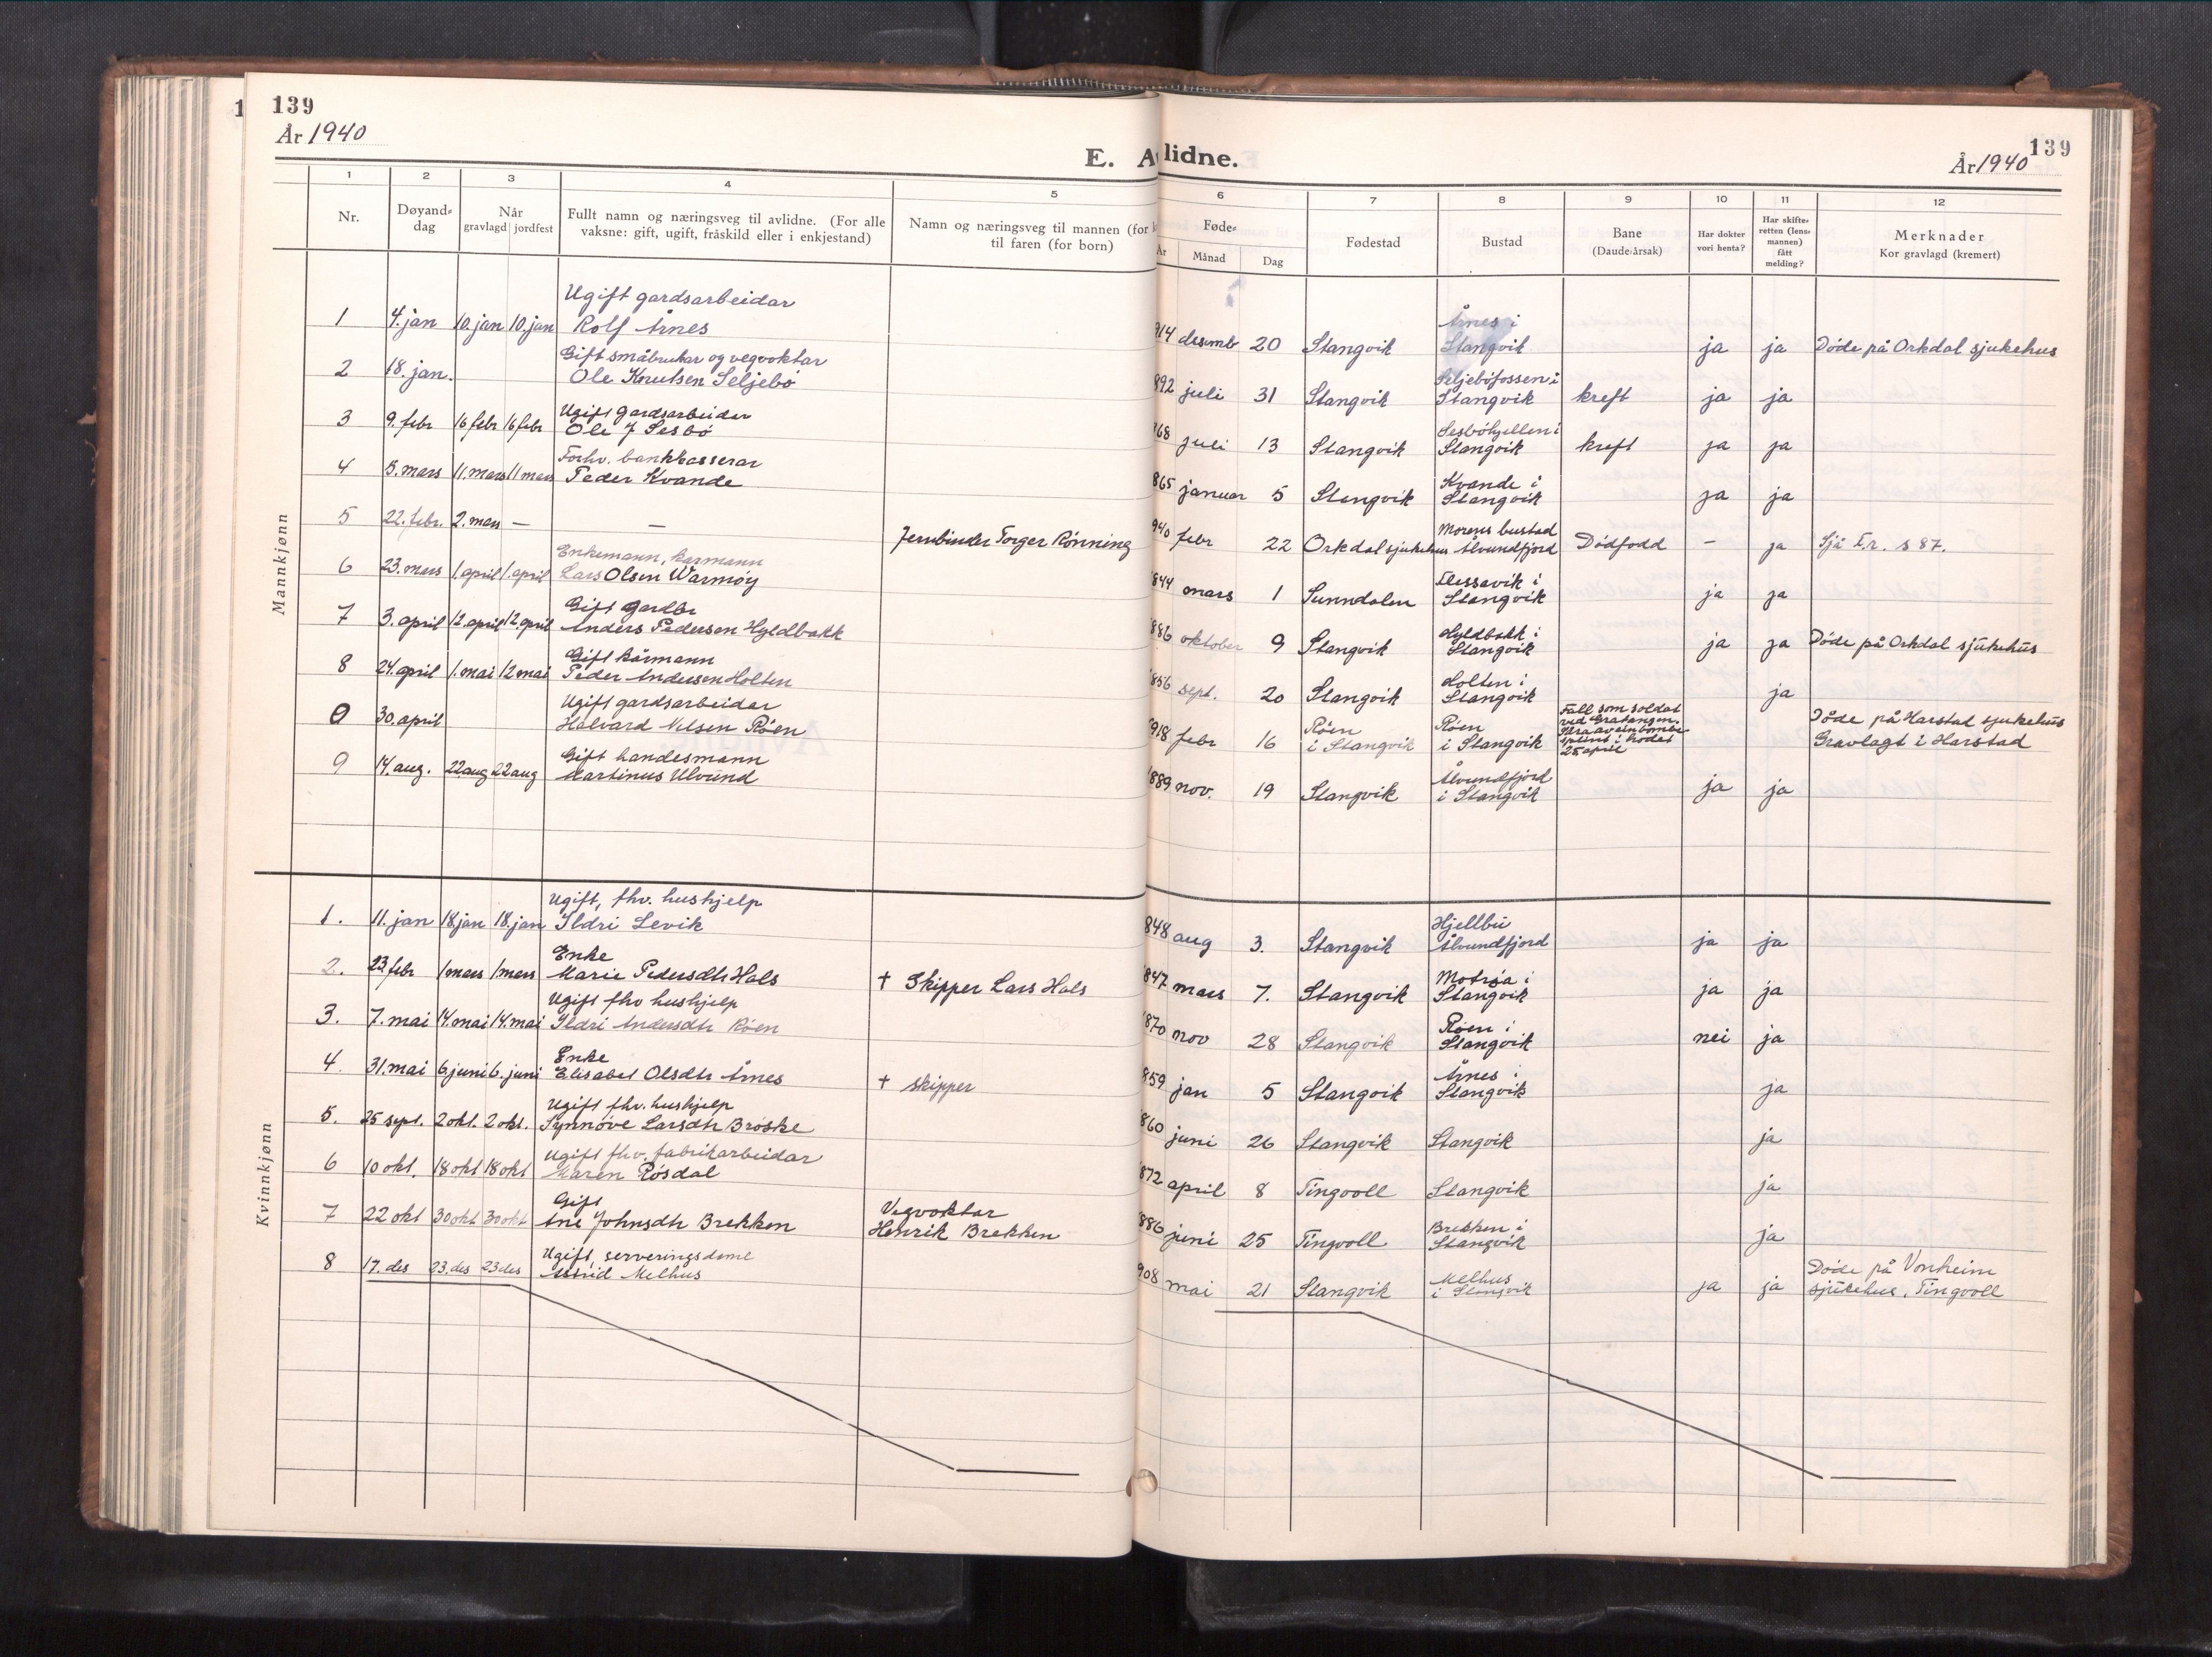 139
År 1940
E. Avlidne.
År 1940
139
1 2 3 4 5 6 7 8 9 10 11 12
Nr.
Døyand-dag
Når gravlagd jordfest
Fullt namn og næringsveg til avlidne. (For alle vaksne: gift, ugift, fråskild eller i enkjestand)
Namn og næringsveg til mannen (for
til faren (for born)
Føde-
År Månad Dag
Fødestad
Bustad
Bane (Daude-årsak)
Har dokter vori henta?
Har skifte-retten (lens-mannen) fått melding?
Merknader
Kor gravlagd (kremert)
Mannkjønn
Ugift gardsarbeidar Årnes i
1 4. jan 10. jan 10. jan Rolf Årnes 914 desemb 20 Stangvik Stangvik ja ja Døde på Orkdal sjukehus
Gift småbrukar og vegvoktar Seljebøfossen i
2 18. jan. Ole Knutsen Seljebø 892 juli 31 Stangvik Stangvik kreft ja ja
Ugift gardsarbeider Sesbøhjellen i
3 9. febr 16 febr 16 febr Ole J Sesbø 868 juli 13 Stangvik Stangvik kreft ja ja
Forhv. bankkasserar Kvande i
4 5. mars 11. mars 11 mars Peder Kvande 865 januar 5 Stangvik Stangvik ja ja
Morens bustad
5 22. febr. 2. mars — — Jernbinder Torger Rønning 940 febr 22 Orkdal sjukehus Ålvundfjord Dødfødd – ja Sjå F.r. s 87.
Enkemann, kårmann Flessavik i
6 23. mars 1. april 1. april Lars Olsen Warmøy 844 mars 1 Sunndalen Stangvik ja ja
Gift gardbr Hyldbakk i
7 3. april 12. april 12. april Anders Pedersen Hyldbakk 886 oktober 9 Stangvik Stangvik ja ja Døde på Orkdal sjukehus
Gift kårmann Holten i
8 24. april 1. mai 12 mai Peder Andersen Holten 856 sept. 20 Stangvik Stangvik ja
Ugift gardsarbeidar Røen Røen Fall som soldat ved Gratangen. Døde på Harstad sjukehus
0 30. april Halvard Nilsen Røen 918 febr 16 i Stangvik i Stangvik splint i hodet 25 april Gravlagt i Harstad
Gift handesmann Ålvundfjord
9 14. aug. 22 aug 22 aug Martinus Ulvund 889 nov. 19 Stangvik i Stangvik ja ja
Kvinnkjønn
Ugift, fhv. hushjelp Hjellbu
1. 11. jan 18 jan 18. jan Ildri Levik 848 aug 3. Stangvik Ålvundfjord ja ja
Enke Motrøa i
2. 23 febr 1 mars 1 mars Marie Pedersdtr Hals † Skipper Lars Hals 847 mars 7. Stangvik Stangvik ja ja
Ugift fhv hushjelp Røen i
3. 7. mai 14. mai 14. mai Ildri Andersdtr Røen 870 nov 28 Stangvik Stangvik nei ja
Enke Årnes i
4. 31. mai 6 juni 6. juni Elisabet Olsdtr Årnes † skipper 859 jan 5 Stangvik Stangvik ja
Ugift fhv. hushjelp
5. 25 sept. 2 okt. 2 okt. Synnøve Larsdtr Brøske 860 juni 26 Stangvik Stangvik ja
Ugift fhv. fabrikarbeidar
6 10 okt. 18 okt 18 okt Maren Røsdal 872 april 8 Tingvoll Stangvik ja
Gift Vegvoktar Brekken i
7 22 okt 30 okt 30 okt Ane Johnsdtr Brekken Henrik Brekken 886 juni 25 Tingvoll Stangvik ja
Ugift, serveringsdame Melhus Døde på Vonheim
8 17. des 23. des 23 des Astrid Melhus 908 mai 21 Stangvik i Stangvik ja ja sjukehus, Tingvoll